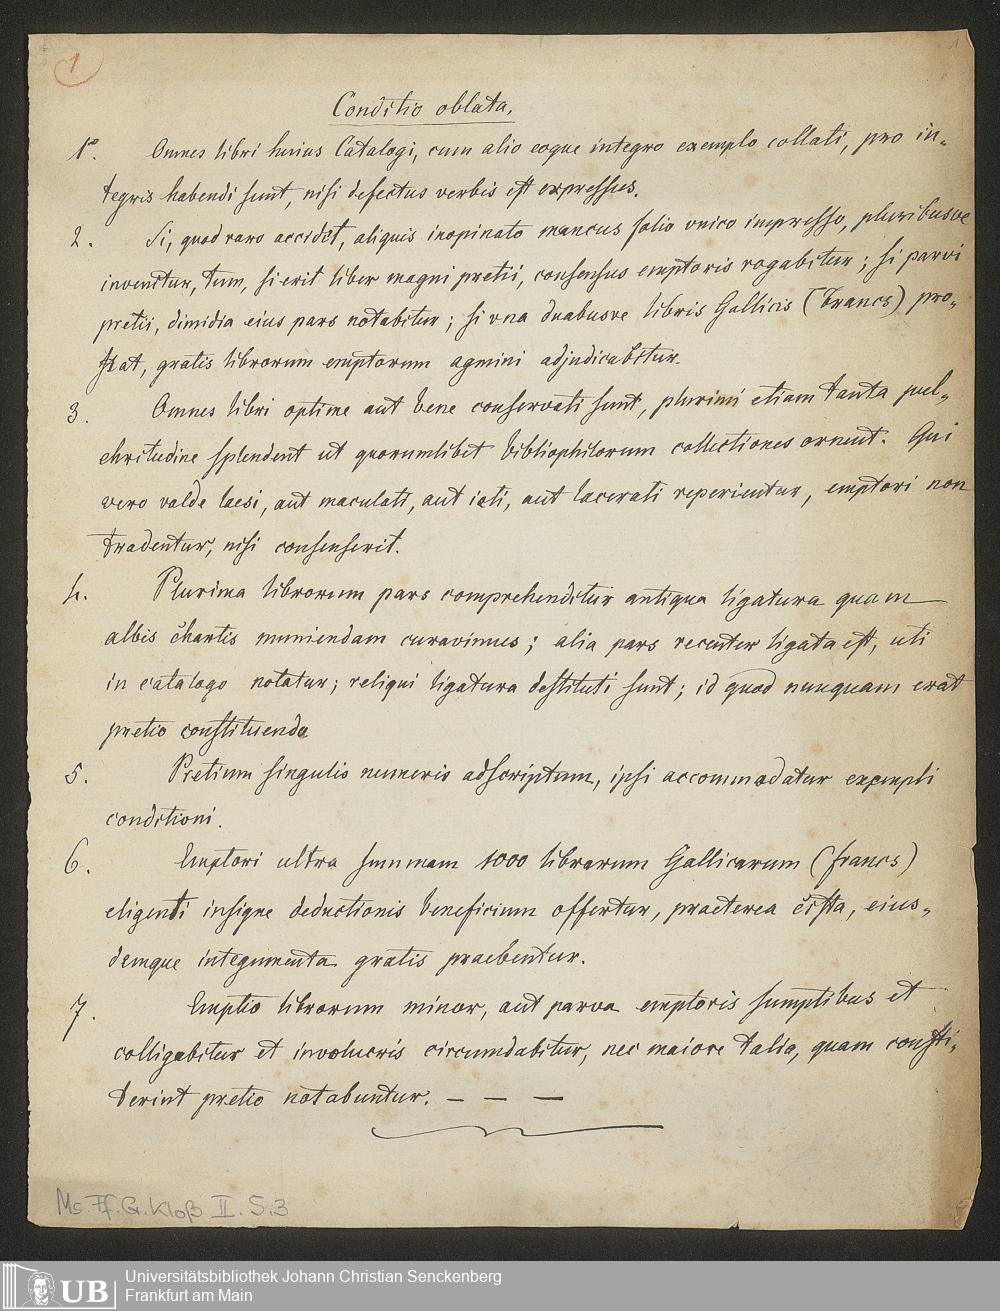 1
1
Conditio oblata.
1°. Omnes libri huius Catalogi, cum alio eoque integro exemplo collati, pro in-
tegris habendi sunt, nisi defectus verbis est expressus.
2. Si, quod raro accidit, aliquis inopinato mancus folio unico impresso, pluribusve
invenitur, tum, si erit liber magni pretii, consensus emptoris rogabitur; si parvi
pretii, dimidia eius pars notabitur; si vna duabusve libris Gallicis (francs) pro-
stat, gratis librorum emptorum agmini adjudicabitur.
3. Omnes libri optime aut bene conservati sunt, plurimi etiam tanta pul-
chritudine splendent ut quorumlibet bibliophilorum collectiones ornent. Qui
vero valde laesi, aut maculati, aut icti, aut lacerati reperientur, emptori non
tradentur, nisi consenserit.
4. Plurima librorum pars comprehenditur antiqua ligatura quam
albis chartis muniendam curavimus; alia pars recenter ligata est, uti
in catalogo notatur; reliqui ligatura destituti sunt; id quod nunquam erat
pretio constituendo
5. Pretium singulis numeris adscriptum, ipsi accommodatur exempli
conditioni.
6. Emptori ultra summam 1000 librarum Gallicarum (francs)
eligenti insigne deductionis beneficium offertur, praeterea cista, eius-
demque integumenta gratis praebentur.
7. Emptio librorum minor, aut parva emptoris sumptibus et
colligabitur et involucris circumdabitur, nec maiore talia, quam consti-
terint pretio notabuntur. — — —
Ms. Ff. G. Kloß II. S. 3
UB
Universitätsbibliothek Johann Christian Senckenberg
Frankfurt am Main